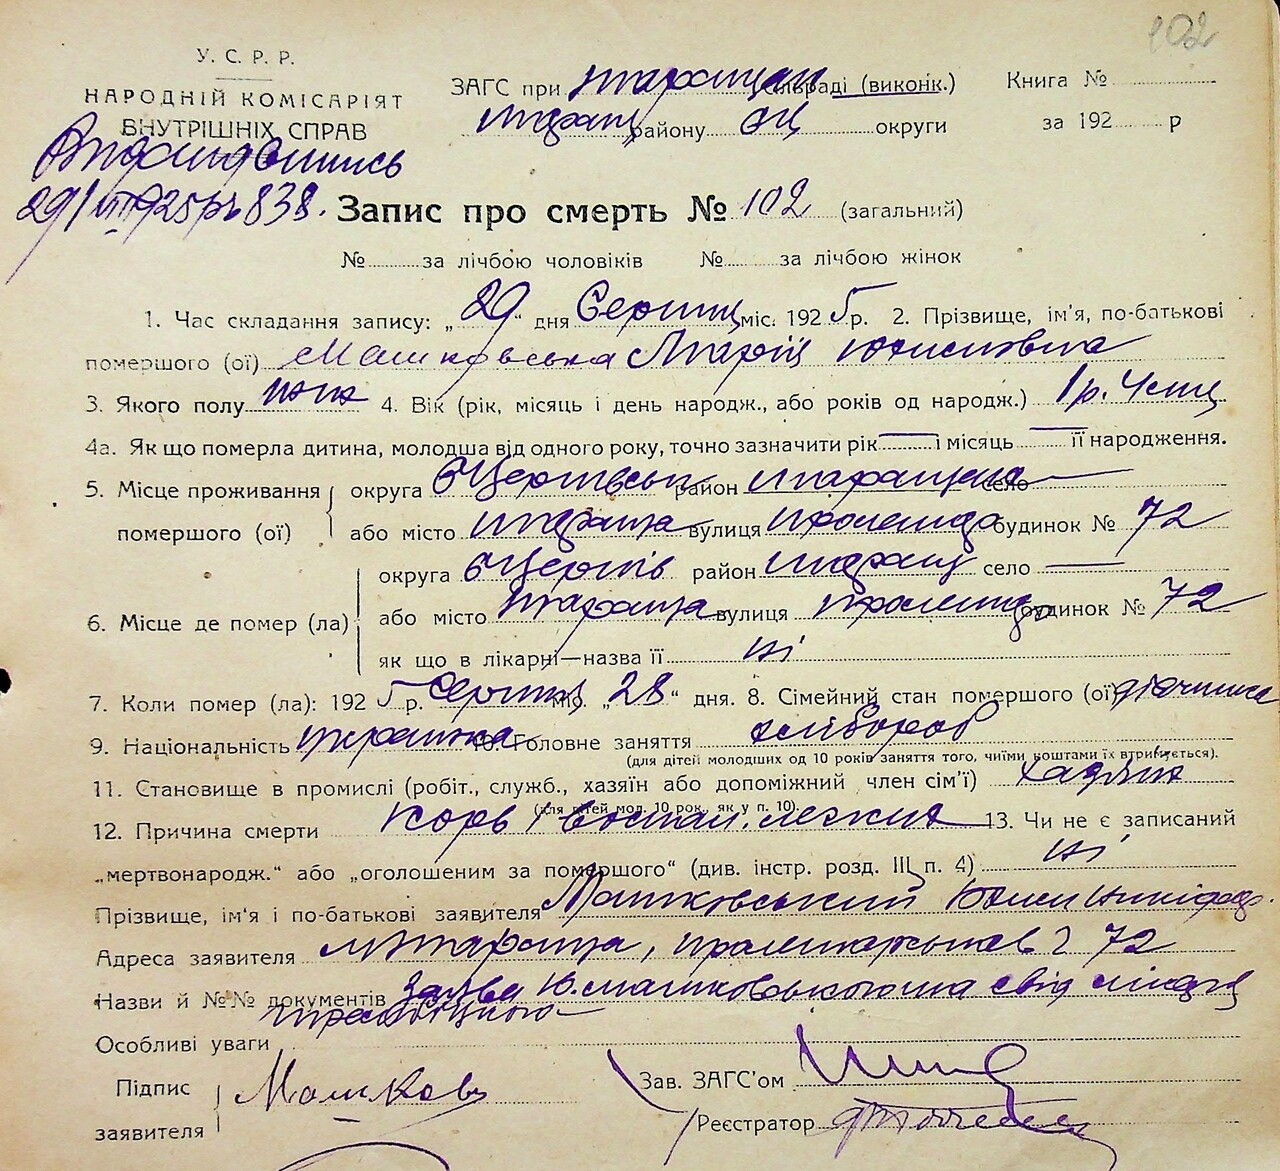 102
У. С. Р. Р.
НАРОДНІЙ КОМІСАРІЯТ
ВНУТРІШНІХ СПРАВ
ЗАГС при Таращан сільраді (виконк.)
Таращ району БЦ округи
Книга №
за 192 р
Видана Випись
29/VIII 925 р № 838.
Запис про смерть № 102 (загальний)
№ за лічбою чоловіків № за лічбою жінок
1. Час складання запису: „29“ дня Серпня міс. 1925 р. 2. Прізвище, ім'я, по-батькові
помершого (ої) Машковська Марія Юхимовна
3. Якого полу жін 4. Вік (рік, місяць і день народж., або років од народж.) 1 р.
4а. Як що померла дитина, молодша від одного року, точно зазначити рік — і місяць — її народження.
5. Місце проживання помершого (ої) округа БЦерківськ район Таращан село —
або місто Тараща вулиця Пролетар будинок № 72
6. Місце де помер (ла) округа БЦерків район Таращ село —
або місто Тараща вулиця Пролетар будинок № 72
як що в лікарні—назва її ні
7. Коли помер (ла): 1925 р. Серпня міс. „28“ дня. 8. Сімейний стан помершого (ої) дівчина
9. Національність українка 10. Головне заняття хлібороб
(для дітей молодших од 10 років заняття того, чиїми коштами їх втримується).
11. Становище в промислі (робіт., служб., хазяїн або допоміжний член сім'ї) хазяїн
(для дітей мол. 10 рок., як у п. 10).
12. Причина смерти Корь і воспал. легких 13. Чи не є записаний
„мертвонародж.“ або „оголошеним за помершого“ (див. інстр. розд. III п. 4) ні
Прізвище, ім'я і по-батькові заявителя Машковський Юхим Никифор.
Адреса заявителя м Тараща, Пролетарська 72
Назви й №№ документів Заява Ю. Машковського та свід
Особливі уваги
Підпис заявителя Машков
Зав. ЗАГС'ом
Реєстратор